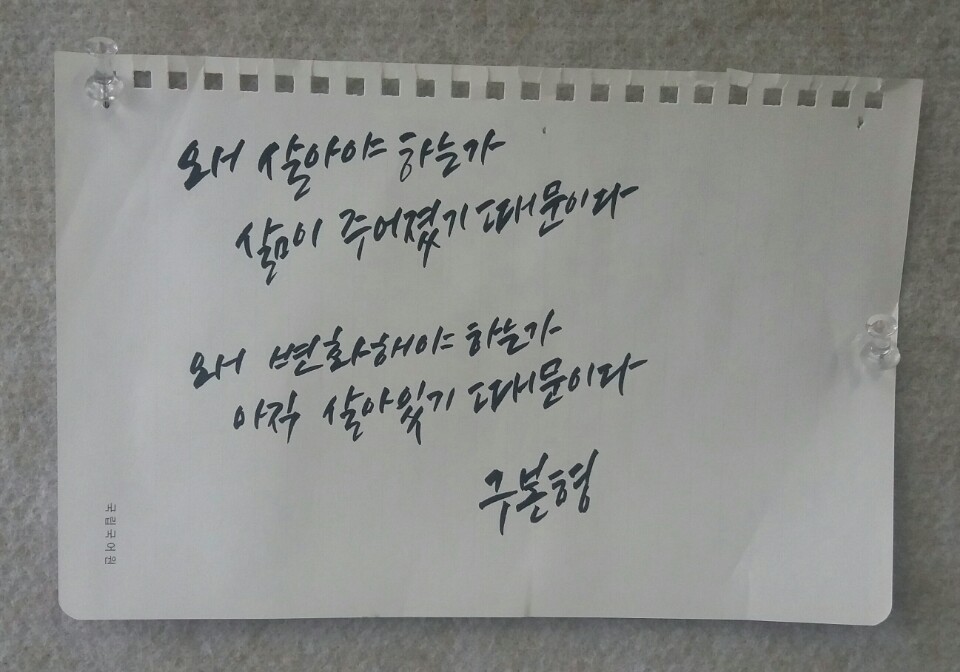 왜 살아야 하는가
삶이 주어졌기 때문이다
왜 변화해야 하는가
아직 살아있기 때문이다
구본형
국립국어원